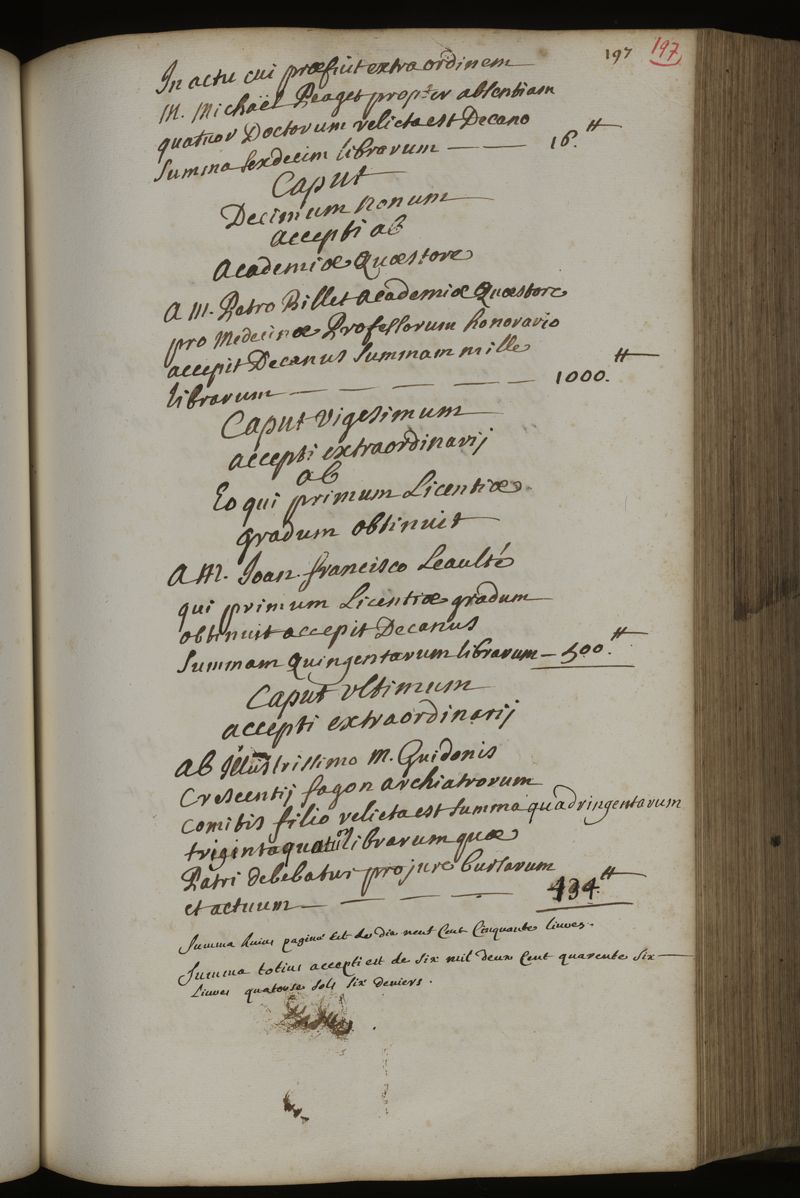 197 197
In actu cui præfuit extra ordinem
M. Michaël Peaget propter absentiam
quatuor Doctorum relicta est Decano
Summa sexdecim librarum — — 16.ᵗᵗ
Caput
Decimum nonum
accepti ab
Academiæ Quæstore
A M. Petro Billet Academiæ Quæstore
pro Medecinæ Professorum honorario
accepit Decanus Summam mille
librarum — — — — — 1000.ᵗᵗ
Caput vigesimum
accepti extraordinarij
ab
Eo qui primum Licentiæ
gradum obtinuit
A M. Joan. francisco Leaulté
qui primum Licentiæ gradum
obtinuit accepit Decanus
Summam Quingentarum librarum — 500.ᵗᵗ
Caput vltimum
accepti extraordinarij
ab illustrissimo M. Guidonis
Crescentij fagon archiatrorum
comitis filio relicta est Summa quadringentarum
triginta quatuor librarum quæ
Patri debebatur pro jure bursarum
et actuum — — — — 434.ᵗᵗ
Summa huius paginæ est de dix neuf Cent Cinquante livres.
Summa totius accepti est de six mil deux Cent quarente six
Livres quatorse sols six deniers.